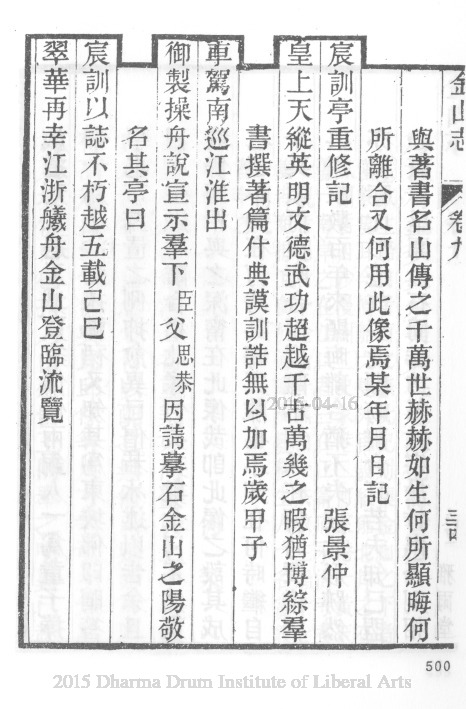 金山志
卷九
與著書名山傳之千萬世赫赫如生何所顯晦何
所離合又何用此像焉某年月日記
宸訓亭重修記
張景仲
皇上天縱英明文德武功超越千古萬幾之暇猶博綜羣
書撰著篇什典謨訓誥無以加焉歲甲子
車駕南巡江淮出
御製操舟說宣示羣下臣父思恭因請摹石金山之陽敬
名其亭曰
宸訓以誌不朽越五載己巳
翠華再幸江浙艤舟金山登臨流覽
2015-04-16
500
2015 Dharma Drum Institute of Liberal Arts